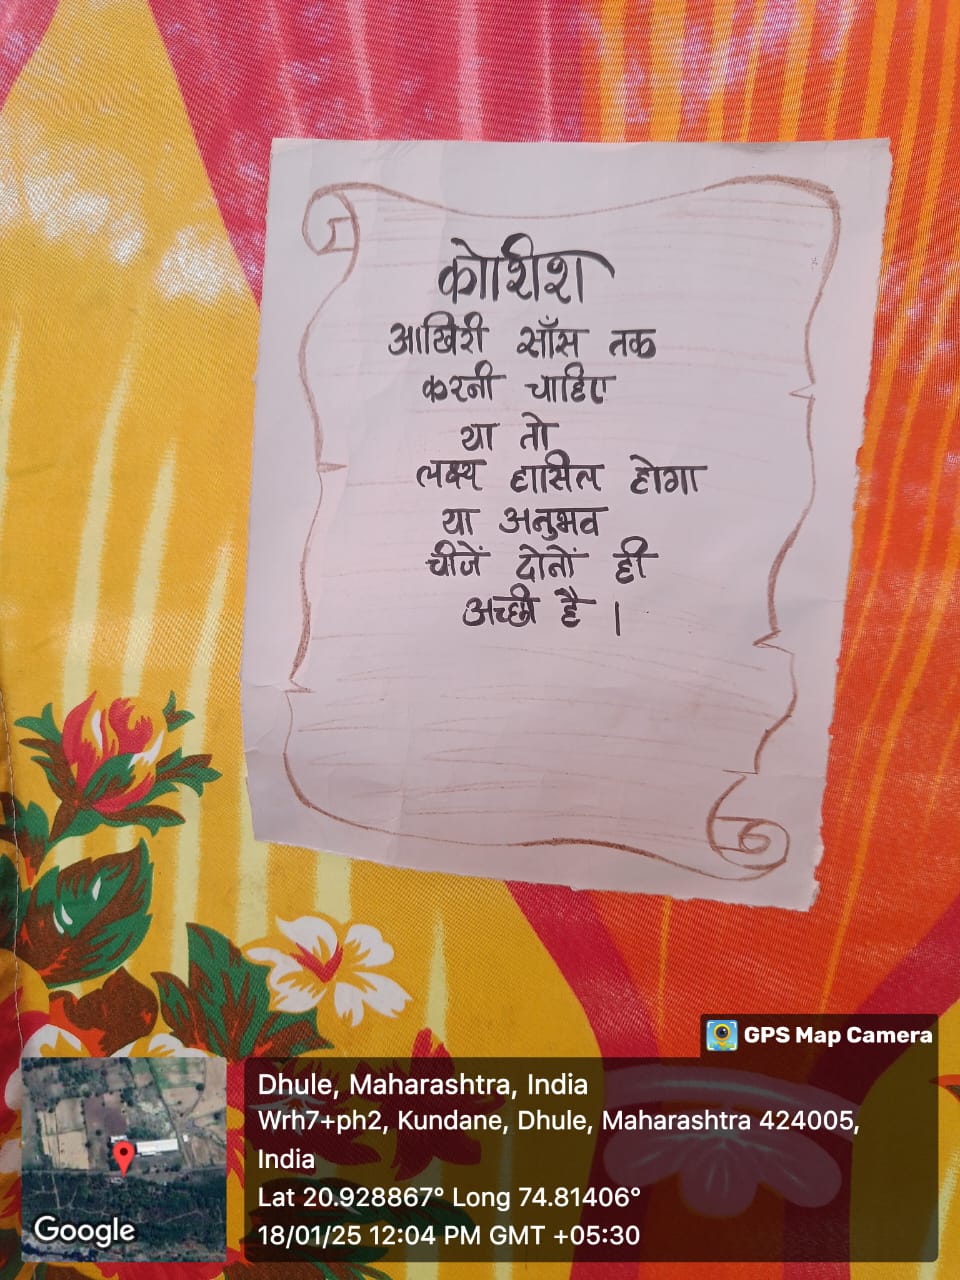 कोशिश
आखिरी साँस तक
करनी चाहिए
या तो
लक्ष्य हासिल होगा
या अनुभव
चीजें दोनों ही
अच्छी है ।
GPS Map Camera
Dhule, Maharashtra, India
Wrh7+ph2, Kundane, Dhule, Maharashtra 424005,
India
Lat 20.928867° Long 74.81406°
18/01/25 12:04 PM GMT +05:30
Google